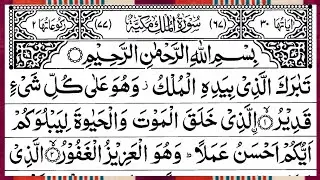 اٰیَاتُهَا ۳۰ (۶۷) سُوْرَةُ الْمُلْكِ مَكِّیَّةٌ (۷۷) رُكُوْعَاتُهَا ۲
بِسْمِ اللّٰهِ الرَّحْمٰنِ الرَّحِیْمِ
تَبٰرَكَ الَّذِیْ بِیَدِهِ الْمُلْكُ ز وَهُوَ عَلٰی كُلِّ شَیْءٍ
قَدِیْرُ ۙ﴿۱﴾ اِ۟لَّذِیْ خَلَقَ الْمَوْتَ وَالْحَیٰوةَ لِیَبْلُوَكُمْ
اَیُّكُمْ اَحْسَنُ عَمَلًا ؕ وَهُوَ الْعَزِیْزُ الْغَفُوْرُ ۙ﴿۲﴾ الَّذِیْ